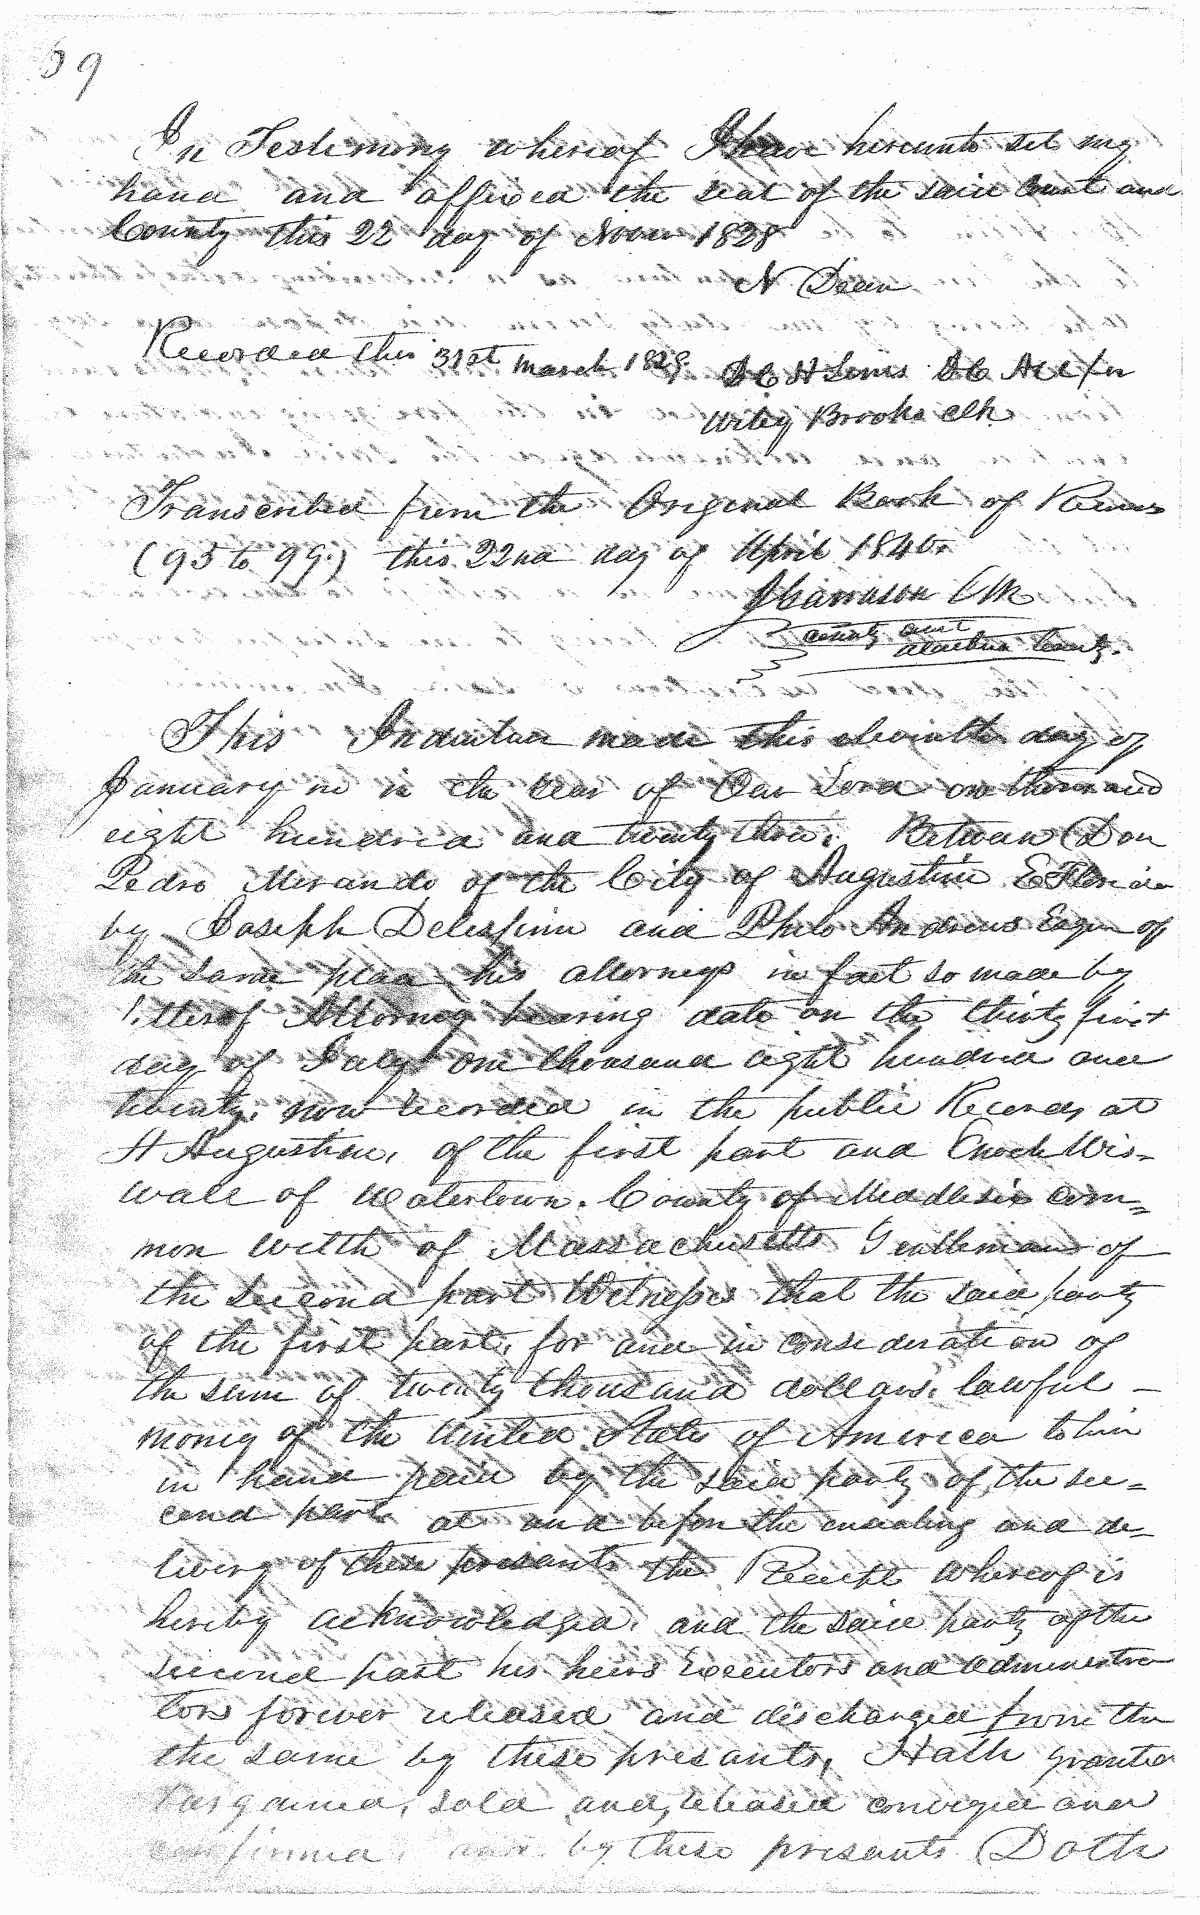 69
In Testimony whereof I have hereunto set my
hand and affixed the seal of the said Court and
County this 22 day of Novr 1828
N Dean
Recorded this 31st March 1829.
D C H
Wiley Brooks Clk
Transcribed from the Original Book of
(95 to 99.) this 22nd day of April 184
Clk
County Court
Alachua County.
This Indenture made this eleventh day of
January in in the Year of Our Lord one thousand
eight hundred and twenty three. Between Don
Pedro Mirando of the City of Augustine E Florida
by Joseph Delespine and Philo Andrews Esqrs of
the same place his attorneys in fact so made by
letter of Attorney bearing date on the thirty first
day of July one thousand eight hundred and
twenty. now recorded in the public Records at
St Augustine, of the first part and Enoch Wis-
wall of Watertown. County of Middlesix com=
mon welth of Massachusetts Gentleman of
the second part Witnesses that the said party
of the first part, for and in consideration of
the sum of twenty thousand dollars. lawful -
money of the United States of America to him
in hand paid by the said party of the sec=
cond part at and before the ensealing and de-
livery of these presants the Receipt whereof is
hereby acknowledged. and the said party of the
second part his heirs Executors and administra
tors forever released and discharged from the
the same by these presants, Hath granted
bargained, sold and, released conveyed and
confirmed. and by these presents Doth